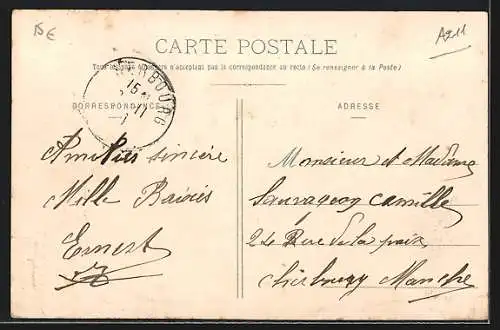 15€
A211
CARTE POSTALE
Tous les pays étrangers n'acceptent pas la correspondance au recto (Se renseigner à la Poste)
CHERBOURG
15
11
CORRESPONDANCE
ADRESSE
Amitiés sincère
Mille Baisers
Ernest
Monsieur et Madame
Sauvageon Camille
24 Rue de la paix
Cherbourg Manche